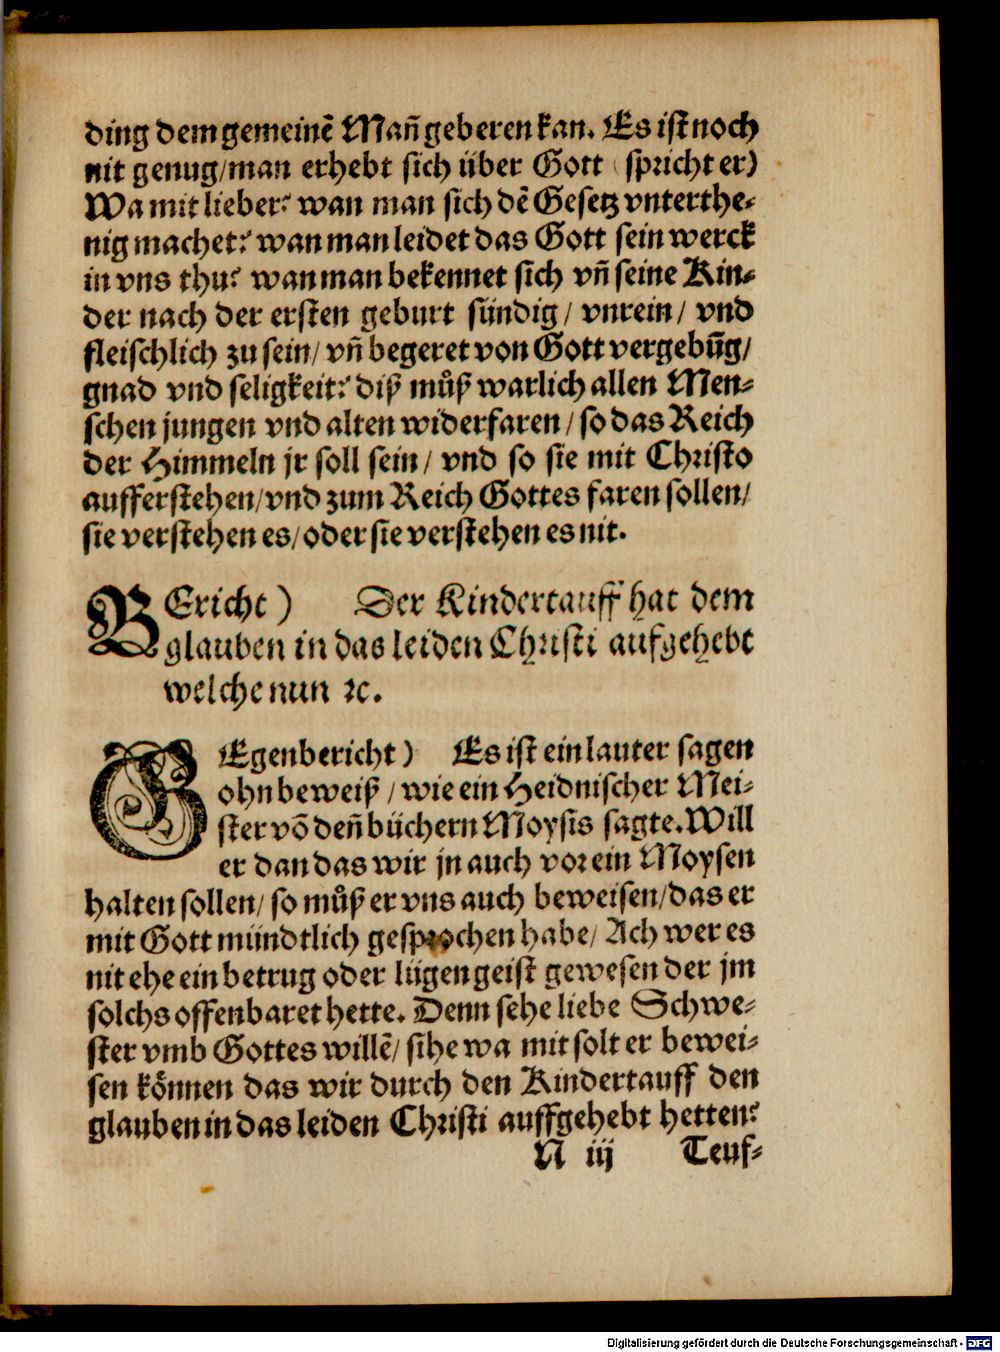 ding dem gemeinẽ Mañ geberen kan. Es ist noch
nit genug/man erhebt sich über Gott (spricht er)
Wa mit lieber? wan man sich dẽ Gesetz vnterthe⸗
nig machet? wan man leidet das Gott sein werck
in vns thu? wan man bekennet sich vñ seine Kin⸗
der nach der ersten geburt sündig/ vnrein/ vnd
fleischlich zu sein/ vñ begeret von Gott vergebũg/
gnad vnd seligkeit? diß můß warlich allen Men⸗
schen jungen vnd alten widerfaren/ so das Reich
der Himmeln jr soll sein/ vnd so sie mit Christo
aufferstehen/vnd zum Reich Gottes faren sollen/
sie verstehen es/oder sie verstehen es nit.
BEricht) Der Kindertauff hat dem
glauben in das leiden Christi aufgehebt
welche nun ꝛc.
GEgenbericht) Es ist ein lauter sagen
ohn beweiß/wie ein Heidnischer Mei⸗
ster võ deñ büchern Moysis sagte. Will
er dan das wir jn auch vor ein Moysen
halten sollen/ so můß er vns auch beweisen/das er
mit Gott mündtlich gesprochen habe/ Ach wer es
nit ehe ein betrug oder lügengeist gewesen der jm
solchs offenbaret hette. Denn sehe liebe Schwe⸗
ster vmb Gottes willẽ/ sihe wa mit solt er bewei⸗
sen können das wir durch den Kindertauff den
glauben in das leiden Christi auffgehebt hetten?
N iij Teuf⸗
Digitalisierung gefördert durch die Deutsche Forschungsgemeinschaft - DFG